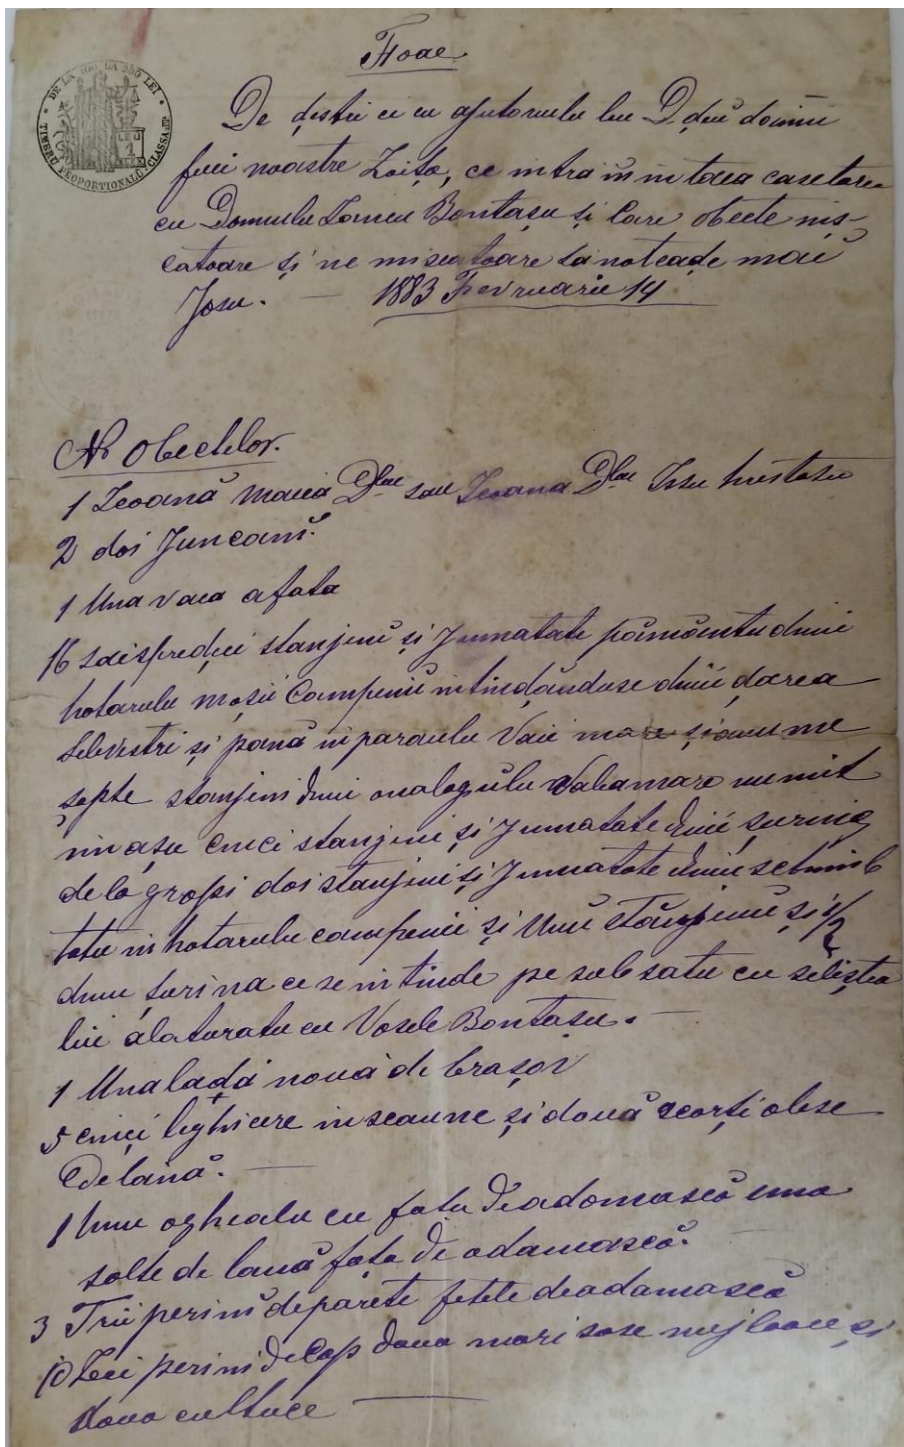 Foae
DE LA 100 PÂNĂ LA 350 LEI
TIMBRU PROPORTIONALŬ CLASSA III
1
De deștii ci cu ajutorulu lui D deŭ doimu
fiici noastre Zoița, ce intra in intăea casetarea
cu Domnulu Iancu Bontașu și Care obecte miș
catoare și ne miscatoare sa noteade mai
Josu. — 1883 Fevruarie 14
Nr Obectelor.
1 Icoană maica Dlui sau Icoana Dlui Isu hristosu
2 doi Juncani.
1 Una vaca afata
16 saisprdeci stanjeni și Jumatate pămăntu dinu
hotarulu moșii Campenii intindăndu se dinii darea
Selivestri și pană in paraulu Vaii mare și anume
șapte stanjeni dinii Valea mare numit
in așu cinci stanjeni și Jumatate dinii
de la gropi doi stanjeni și Jumatate dinu
totu in hotarulu campenii și Unu stănjinu și 1/2
dinu surina ce se intinde pe sub satu cu seliștea
lui alaturatu cu Vasile Bontașu. —
1 Una ladă nouă de brașov
5 cinci lighicere in scaune și două scorți alese
de lână. —
1 Unu oghealu cu fata de adamască una
salte de lană fața de adamască.
3 Trii perini de parete fetele de adamască
10 Zeci perini de Cap doua mari sase mijloace și
doua cultuce —